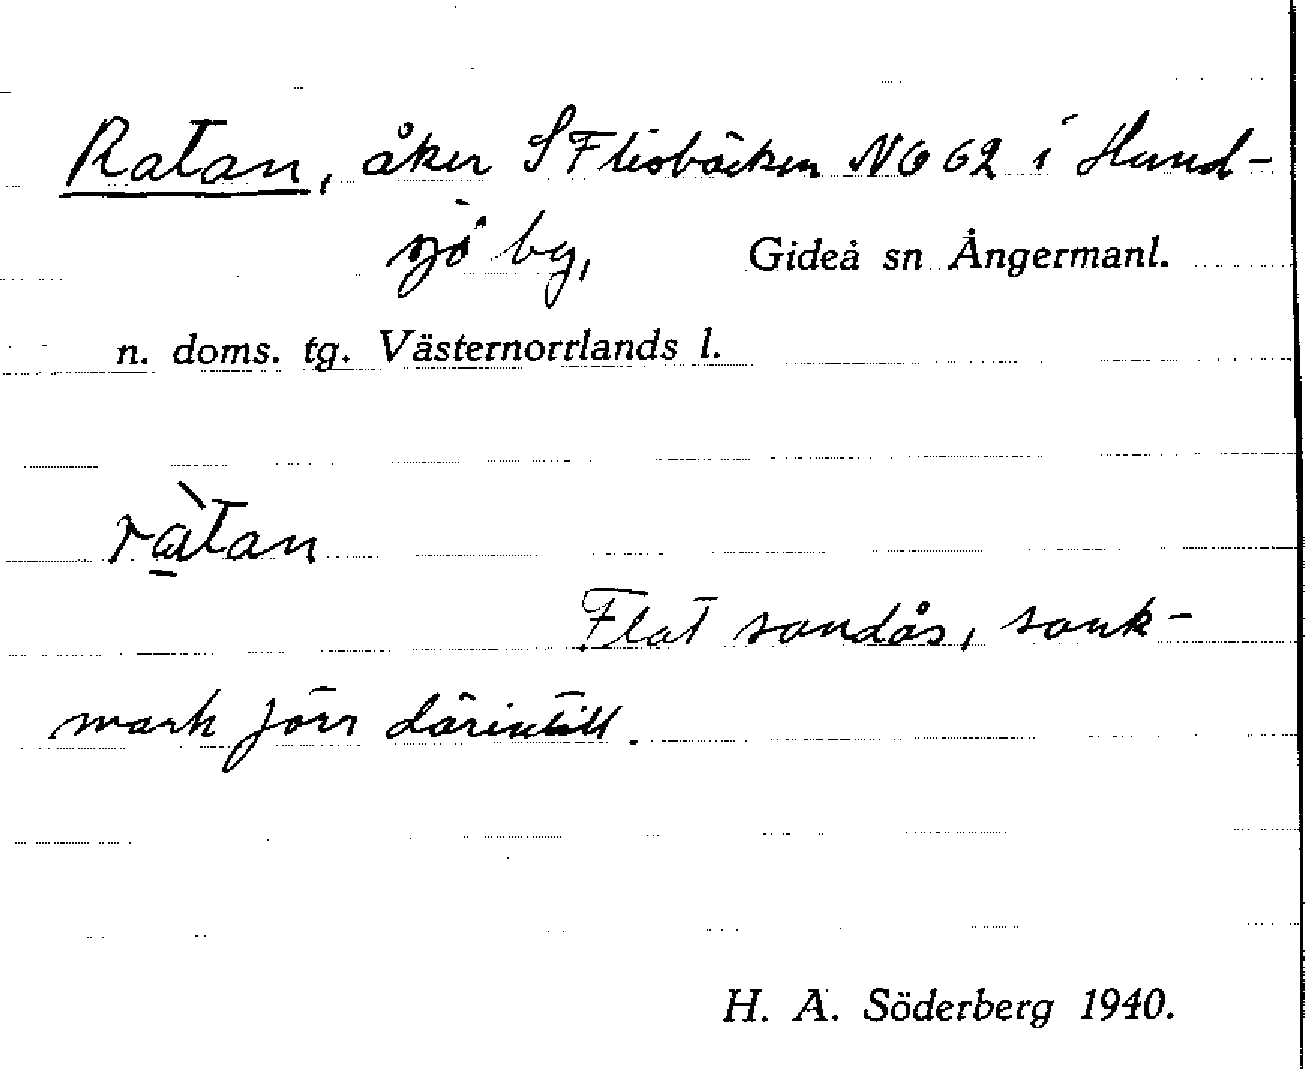 Ratan, åker S Flisbäcken NG 62 i Hund-
sjö by, Gideå sn Ångermanl.
n. doms. tg. Västernorrlands l.
rà̱tan
Flat sandås, sank-
mark förr därintill.
H. A. Söderberg 1940.